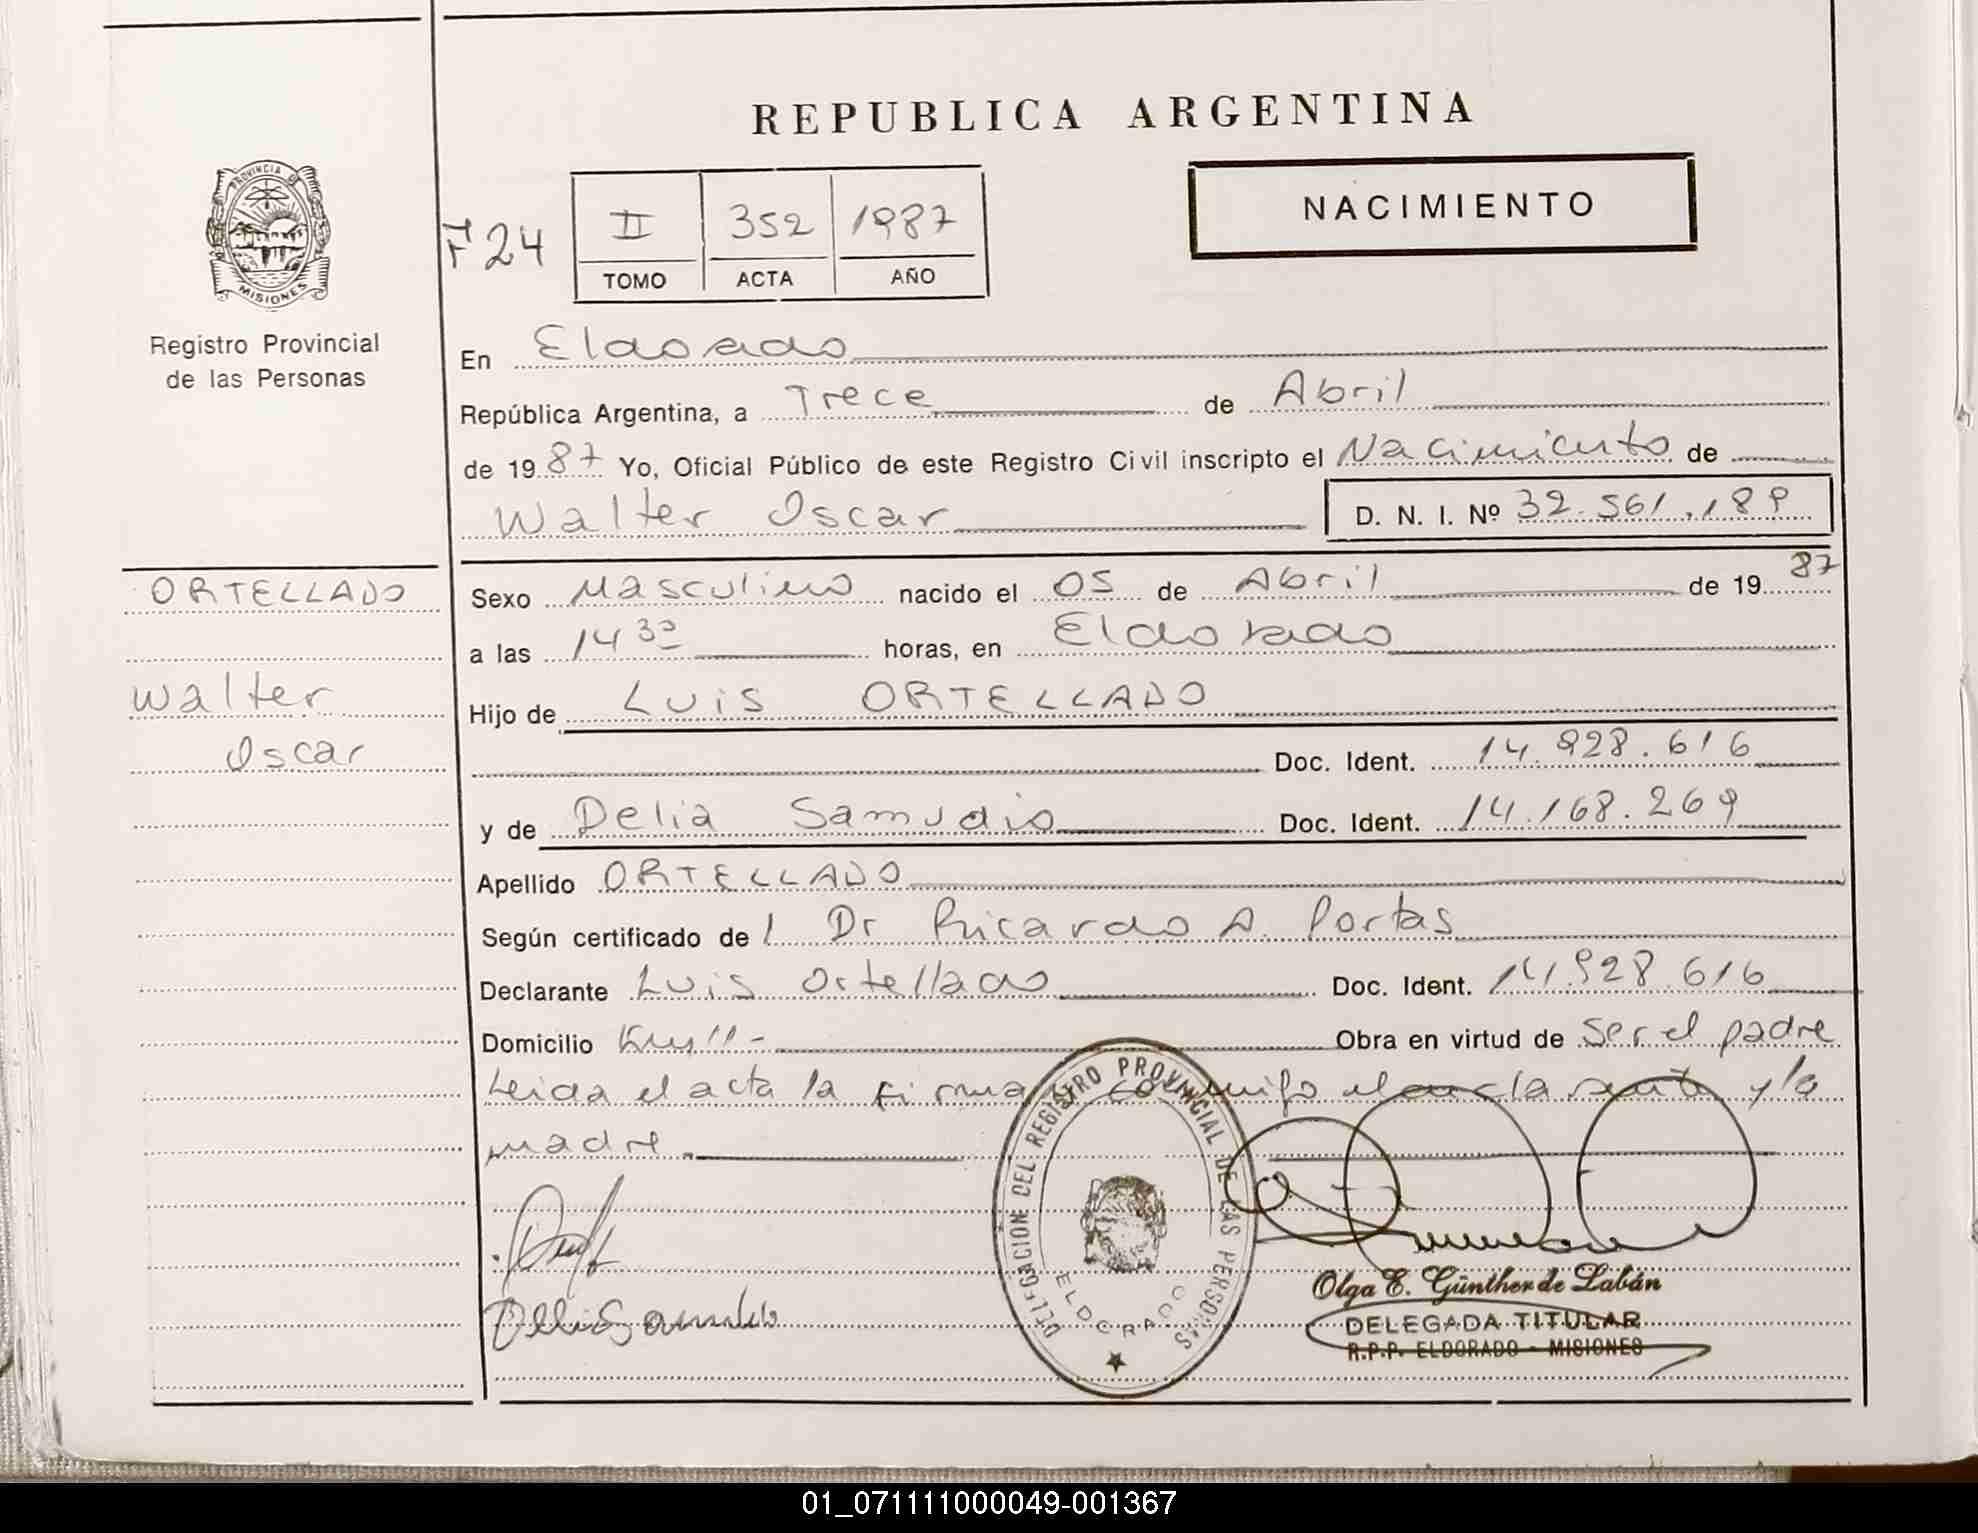 REPUBLICA ARGENTINA
PROVINCIA D
MISIONES
Registro Provincial
de las Personas
F 24
II 352 1987
TOMO ACTA AÑO
NACIMIENTO
En Eldorado
República Argentina, a Trece de Abril
de 1987 Yo, Oficial Público de este Registro Civil inscripto el Nacimiento de
Walter Oscar D. N. I. Nº 32.561.189
ORTELLADO
Walter
Oscar
Sexo Masculino nacido el 05 de Abril de 1987
a las 14 30 horas, en Eldorado
Hijo de Luis ORTELLADO
Doc. Ident. 14.928.616
y de Delia Samudio Doc. Ident. 14.168.269
Apellido ORTELLADO
Según certificado de l Dr Ricardo A. Portas
Declarante Luis Ortellado Doc. Ident. 14.928.616
Domicilio Km 11 - Obra en virtud de ser el padre
Leida el acta la firma conmigo el declarante y la
madre
DELEGACION DEL REGISTRO PROVINCIAL DE LAS PERSONAS
ELDORADO
Delia Samudio
Olga E. Günther de Labán
DELEGADA TITULAR
R.P.P. ELDORADO - MISIONES
01_071111000049-001367